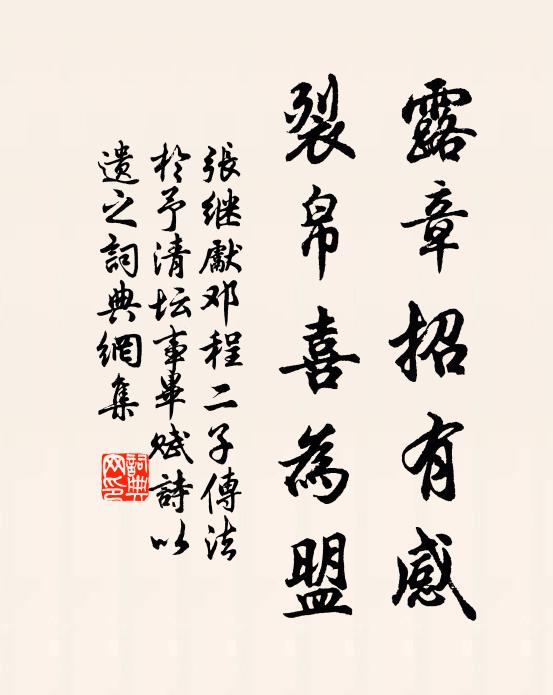 露章招有感
裂帛喜為盟
張继獻邓程二子傳法
於予清坛事畢赋詩以
遺之詞典網集
詞典网印